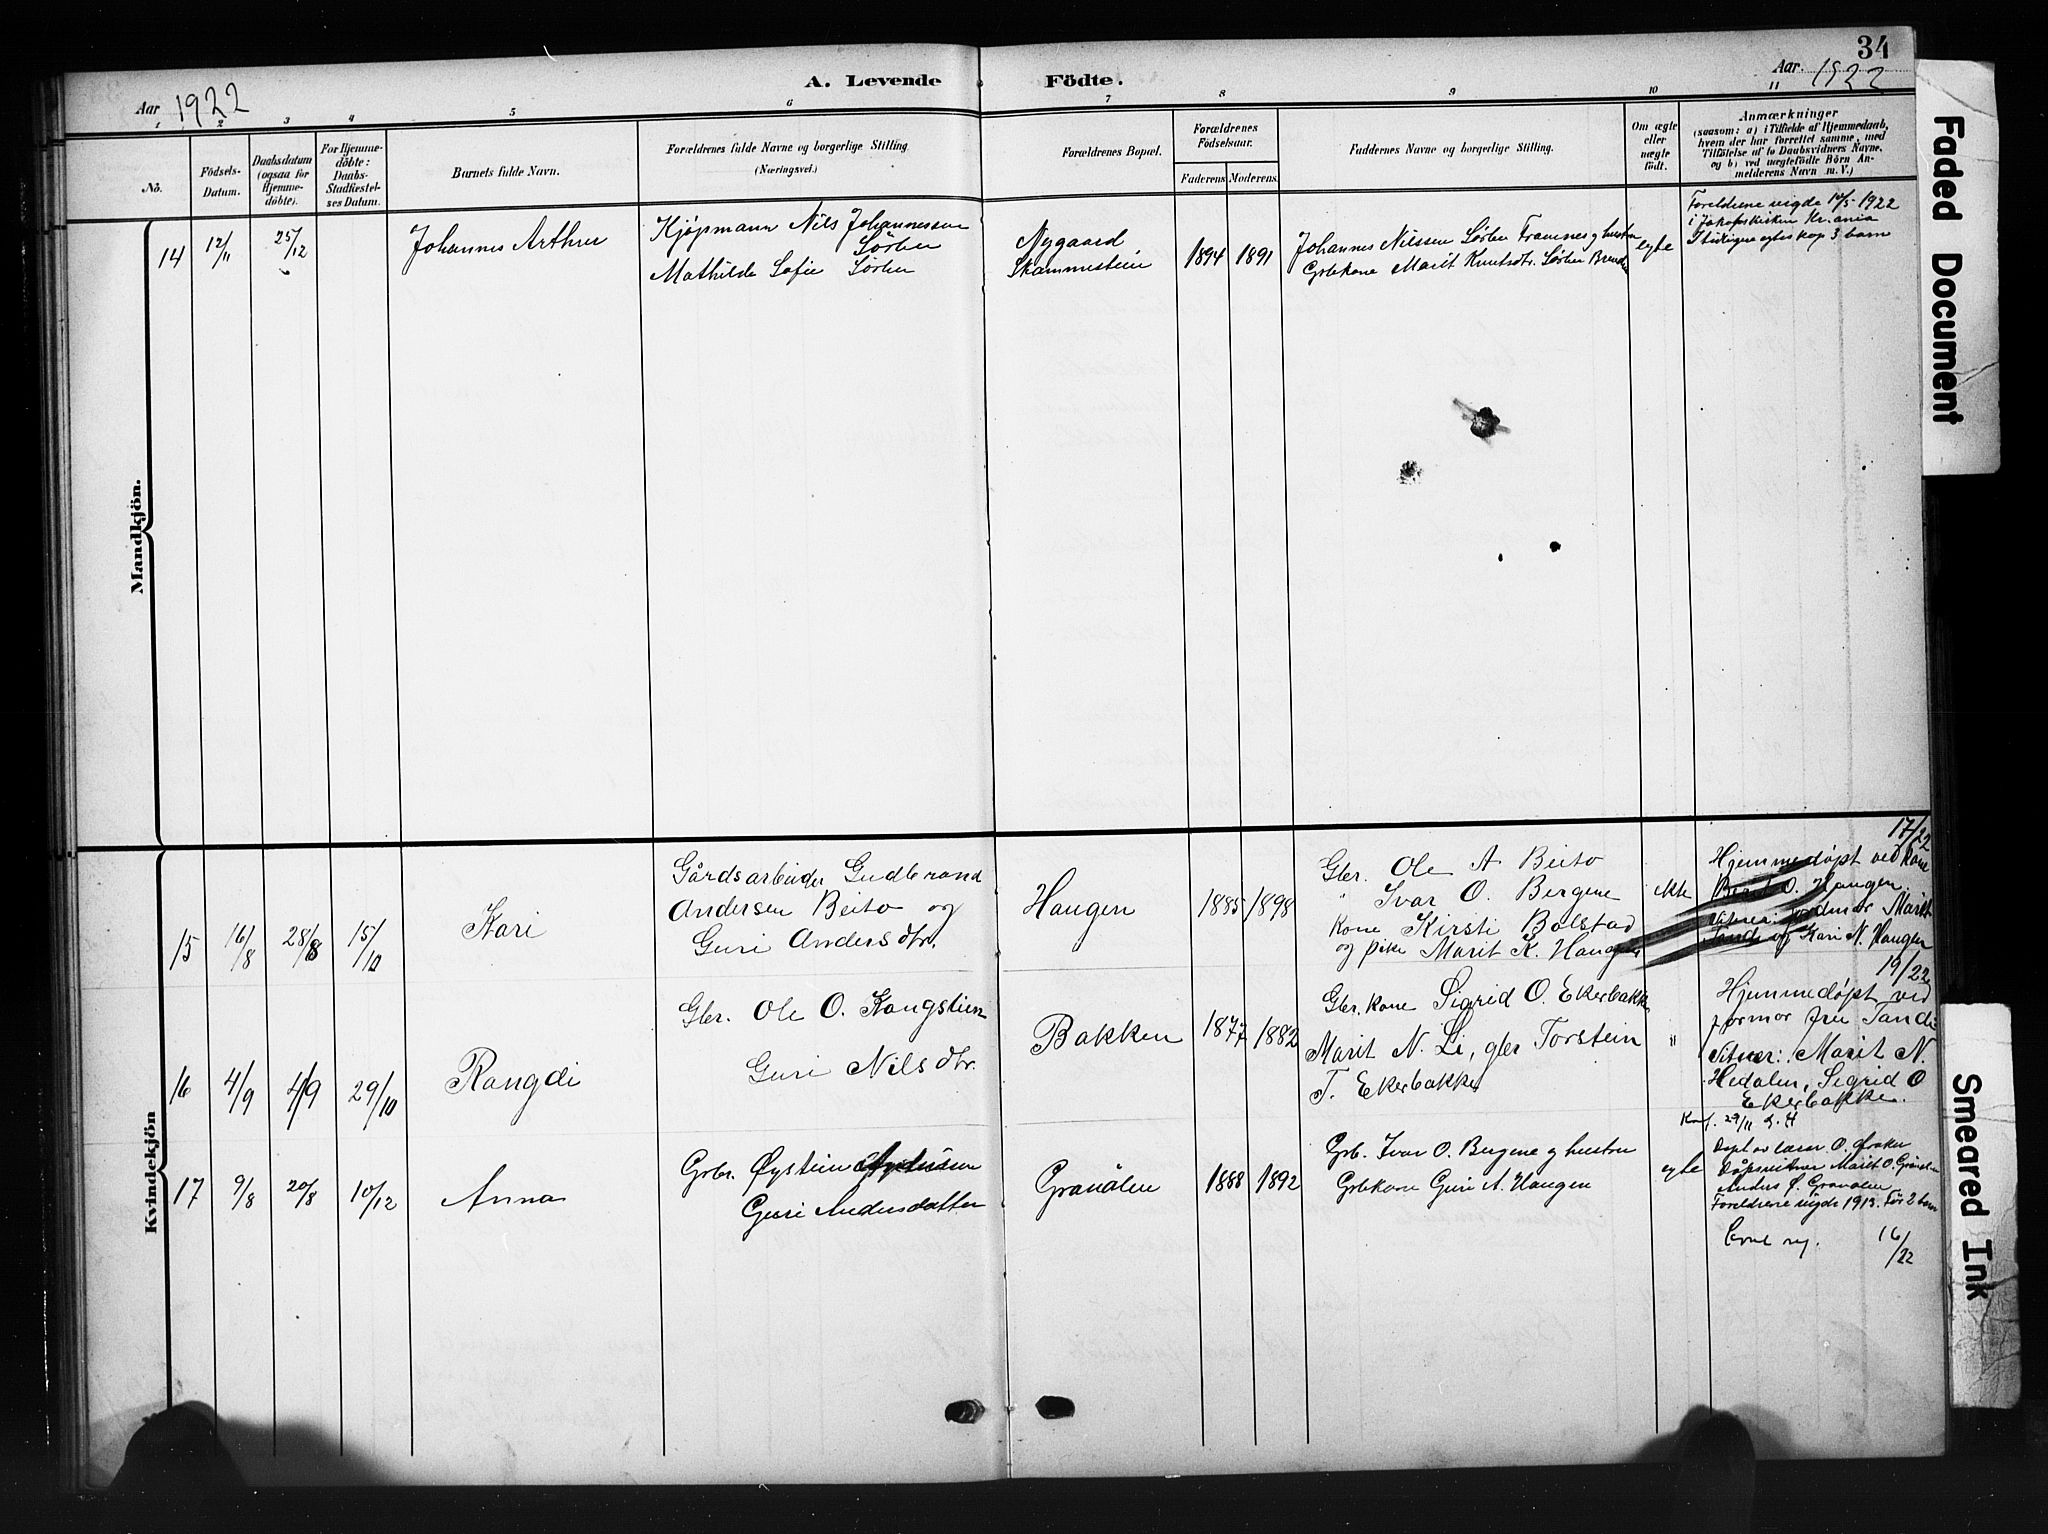 34
A. Levende Födte.
Aar 1922
Aar. 1922
1 2 3 4 5 6 7 8 9 10 11
No.
Födsels-
Datum.
Daabsdatum
(ogsaa for
Hjemme-
döbte).
For Hjemme-
döbte:
Daabs-
Stadfæstel-
ses Datum.
Barnets fulde Navn.
Forældrenes fulde Navne og borgerlige Stilling
(Næringsvei.)
Forældrenes Bopæl.
Forældrenes
Födselsaar.
Faderens. Moderens.
Faddernes Navne og borgerlige Stilling.
Om ægte
eller
uægte
födt.
Anmærkninger
(saasom: a) i Tilfælde af Hjemmedaab,
hvem der har forrettet samme, med
Tilföielse af to Daabsvidners Navne,
og b) ved uægtefödte Börn An-
melderens Navn m. V.)
Mandkjön.
14
12/11
25/12
Johannes Arthur
Kjøpmann Nils Johannessen
Sörlen
Mathilde Sofie Sörlen
Nygaard
Skammestein
1894
1891
Johannes Nilssen Sörlen Framnes og hustru
Grbkone Marit Knutsdtr. Sörlen
egte
Foreldrene vigde 14/5 1922
i Jakopskirken Kr.ania
I tidligere egteskap 3 barn
Kvindekjön
15
16/8
28/8
15/10
Kari
Gårdsarbeider Gudbrand
Andersen Beito og
Guri Andersdtr.
Haugen
1885
1898
Gbr. Ole A Beito
" Ivar O. Bergene
Kone Kirsti Bolstad
og pike Marit K. Haugen
ekte
17/22
Hjemmedøpt ved Kone
Berit O. Haugen
Vitner: jordmor Marit
og Kari N. Haugen
16
4/9
4/9
29/10
Rangdi
Gbr. Ole O. Kongstein
Guri Nilsdtr.
Bakken
1877
1882
Gbr. kone Sigrid O. Ekerbakke
Marit N. Li, gbr Torstein
T. Ekerbakke
"
19/22
Hjemmedøpt ved
formor fru
Vitner: Marit N.
Hedalen, Sigrid O
Ekerbakke.
17
9/8
20/8
10/12
Anna
Grbr. Øystein
Guri Andersdatter
Granålen
1888
1892
Grb. Ivar O. Bergene og hustru
Grbkone Guri A. Haugen
egte
Konf. 29/11
Døpt av lærer O.
Dåpsvitner Marit O. Grånålen
Anders Ø. Granålen
Foreldrene vigde 1913. Før 2 barn
16/22
Faded Document
Smeared Ink